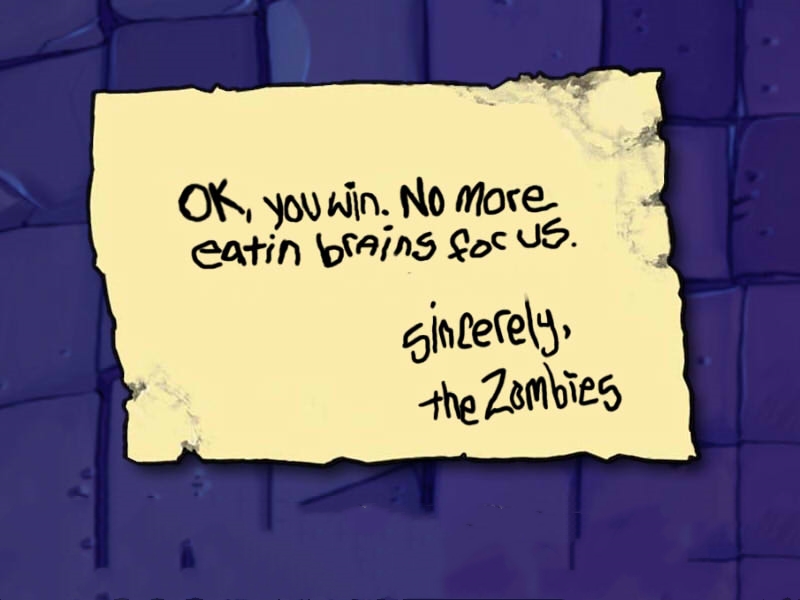 OK, you win. No more
eatin brains for us.
sincerely,
the Zombies